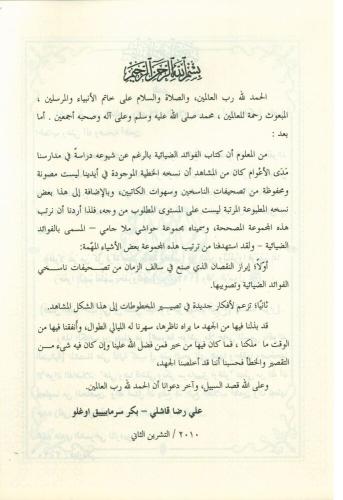 بسم الله الرحمن الرحيم
الحمد لله رب العالمين، والصلاة والسلام على خاتم الأنبياء والمرسلين ،
المبعوث رحمة للعالمين ، محمد صلى الله عليه وسلم وعلى آله وصحبه أجمعين . أما
بعد :
من المعلوم أن كتاب الفوائد الضيائية بالرغم عن شيوعه دراسةً في مدارسنا
مَدَى الأعْوام كان من المشاهد أن نسخه الخطية الموجودة في أيدينا ليست مصونة
ومحفوظة من تصحيفات الناسخين وسهوات الكاتبين، وبالإضافة إلى هذا بعض
نسخه المطبوعة المرتبة ليست على المستوى المطلوب من وجه، فلذا أردنا أن نرتب
هذه المجموعة المصححة، وسميناه بمجموعة حواشي ملا جامي – المسمى بالفوائد
الضيائية – ولقد استهدفنا من ترتيب هذه المجموعة بعض الأشياء المهمَّة:
أوّلاً؛ إبراز النقصان الذي صنع في سالف الزمان من تصحيفات ناسخي
الفوائد الضيائية وتصويبها.
ثانيًا؛ تزعم لأفكار جديدة في تصيير المخطوطات إلى هذا الشكل المشاهد.
قد بذلنا فيها من الجهد ما يراه ناظرها، سهرنا له الليالي الطوال، وأنفقنا فيها من
الوقت ما ملكنا ، فما كان فيها من خير فمن فضل الله علينا وإن كان فيه شيء من
التقصير والخطأ فحسبنا أننا قد أخلصنا الجهد،
وعلى الله قصد السبيل، وآخر دعوانا أن الحمد لله رب العالمين.
علي رضا قاشلي – بكر سرماييبيق اوغلو
٢٠١٠ / التشرين الثاني